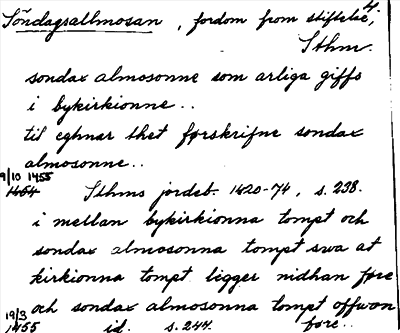 4.
Söndagsallmosan, fordom from stiftelse,
Sthm.
sondax almosonne som arliga giffs
i bykirkionne..
til eghnar thet førskrifne sondax
almosonne..
9/10 1455
1464 Sthms jordeb. 1420-74, s. 238.
i mellan bykirkionna tompt och
sondax almosonna tompt swa at
kirkionna tompt ligger nidhan føre
och sondax almosonna tompt offwan
19/3 føre..
1455 id. s. 244.